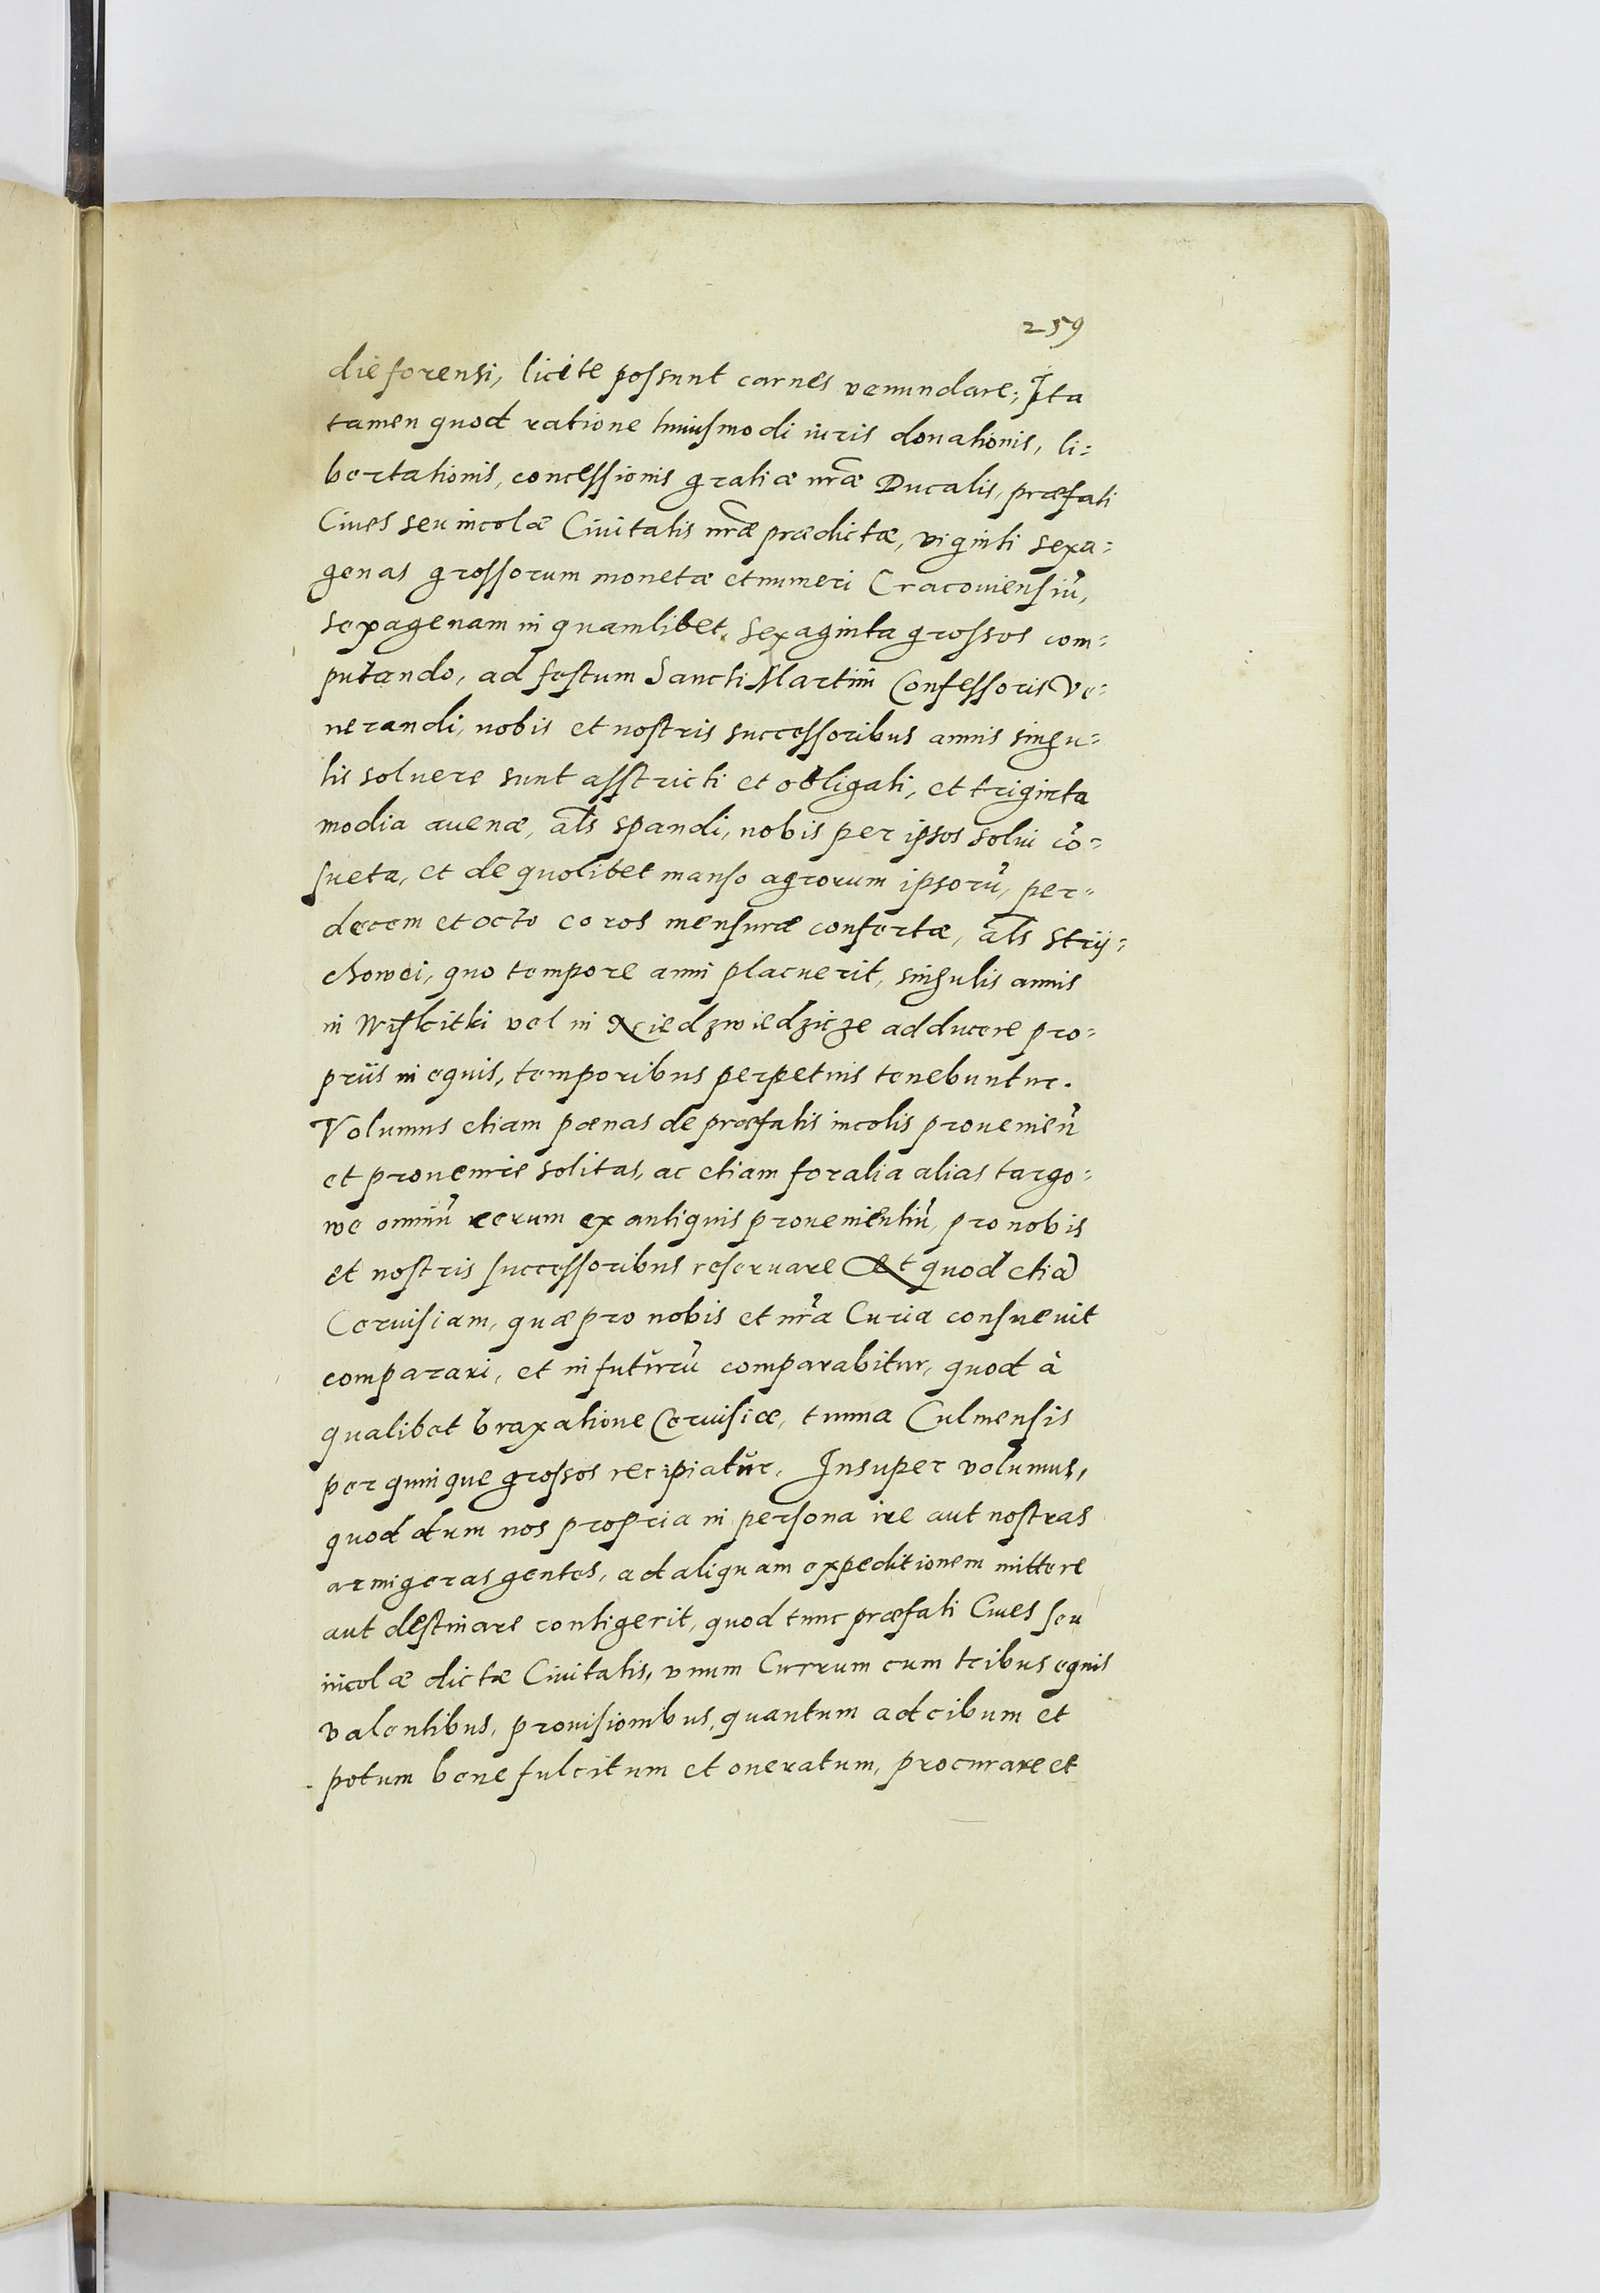 259
die forensi, licite possunt carnes venundare; Ita
tamen quod ratione huiusmodi iuris donationis, li:
bertationis, concessionis gratiæ nr̃æ Ducalis, præfati
Ciues seu incolæ Ciuitatis nr̃æ prædictæ, viginti sexa:
genas grossorum monetæ et numeri Cracouiensiũ,
sexagenam in quamlibet, sexaginta grossos com:
putando, ad festum Sancti Martini Confessoris Ve:
nerandi, nobis et nostris successoribus annis singu:
lis soluere sunt asstricti et obligati, et triginta
modia auenæ, al̃s spandi, nobis per ipsos solui cõ:
sueta, et de quolibet manso agrorum ipsorũ, per:
decem et octo coros mensuræ confertæ, al̃s strij:
chowei, quo tempore anni placuerit, singulis annis
in Wiskitki vel in Niedzwiedzicze adducere pro:
priis in equis, temporibus perpetuis tenebuntur.
Volumus etiam pœnas de præfatis incolis prouenieñ
et prouenire solitas, ac etiam foralia alias targo:
we omniũ rerum ex antiquis prouenientiũ, pro nobis
et nostris successoribus reseruare Et quod etiã
Ceruisiam, quæ pro nobis et nr̃a Curia consueuit
comparari, et in futurũ comparabitur, quod à
qualibet braxatione Ceruisiæ, tunna Culmensis
per quinque grossos recipiatur. Insuper volumus,
quod dum nos propria in persona ire aut nostras
armigeras gentes, ad aliquam expeditionem mittere
aut destinare contigerit, quod tunc præfati Ciues seu
incolæ dictæ Ciuitatis, vnum Currum cum tribus equis
valentibus, prouisionibus, quantum ad cibum et
potum bene fulcitum et oneratum, procurare et